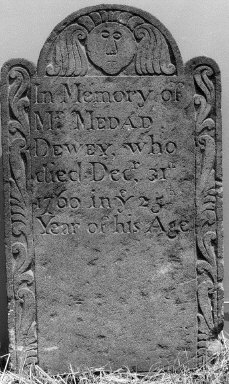 In Memory of
Mr. MEDAD
DEWEY, who
died Decr. 31st
1760 in ye 25
Year of his Age